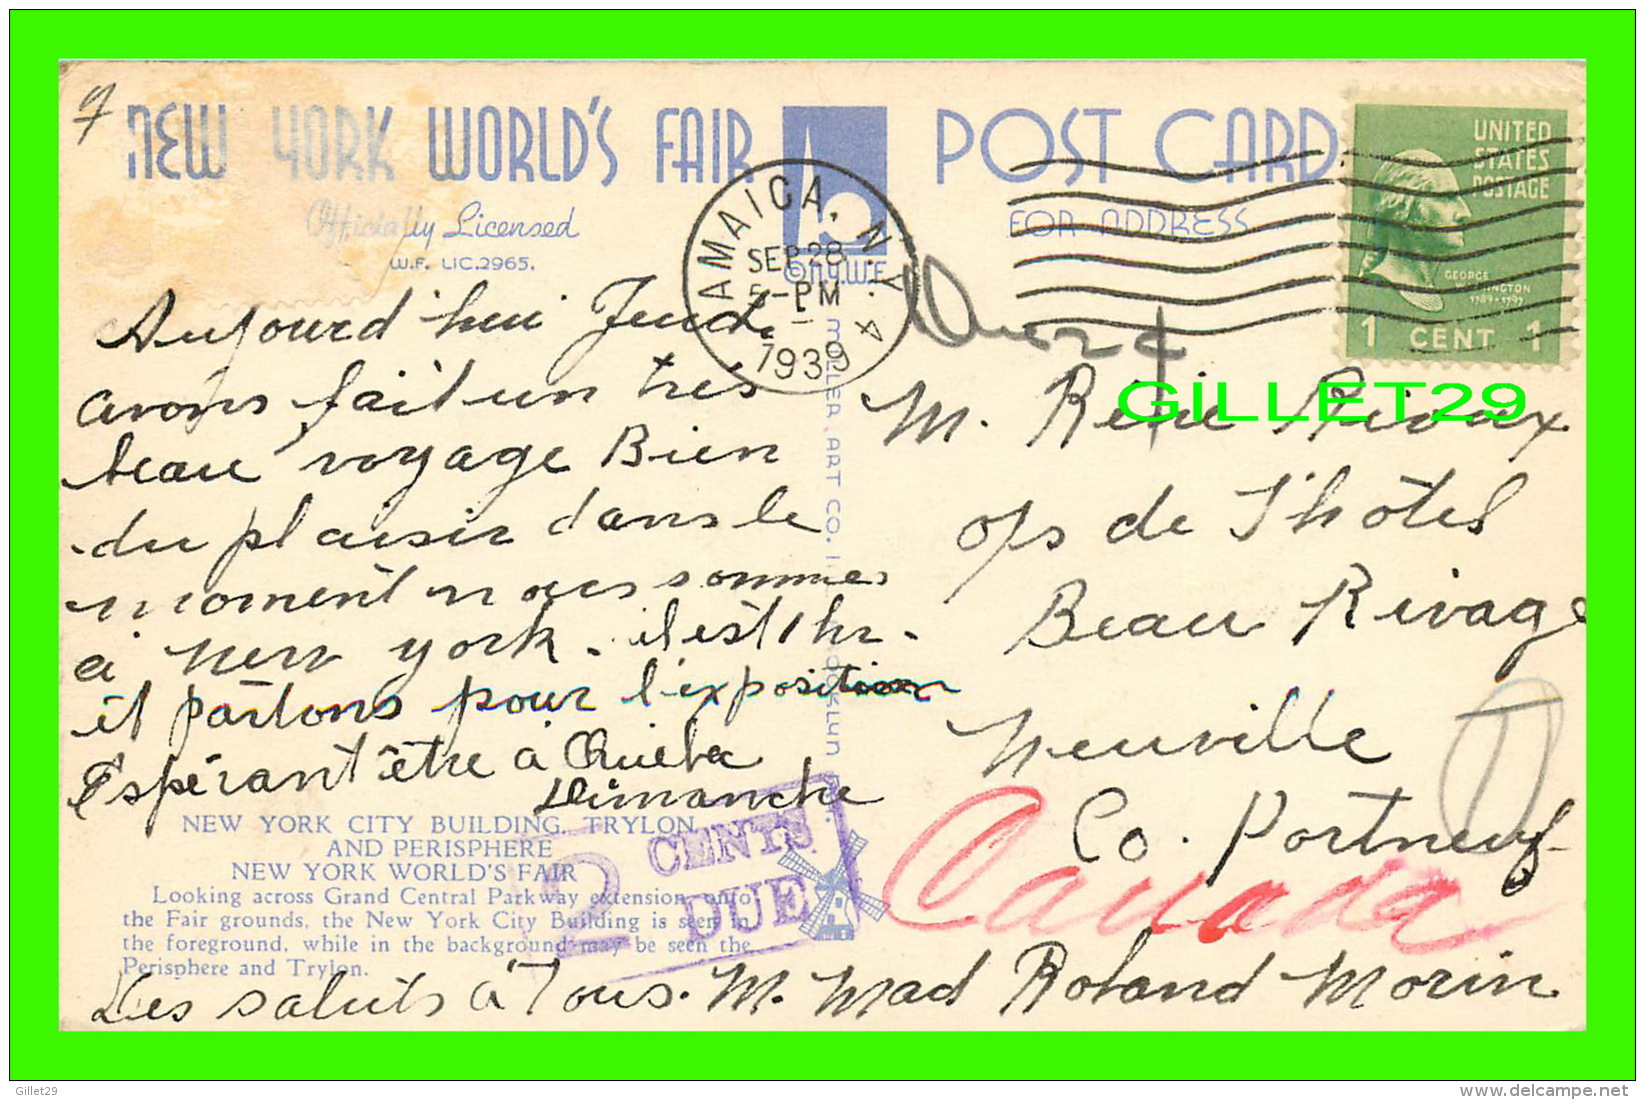 NEW YORK WORLD'S FAIR
Officially Licensed
W.F. LIC.2965.
POST CARD
FOR ADDRESS
© N.Y.W.F.
JAMAICA, N.Y. 4
SEP 28
5-PM
1939
UNITED
STATES
POSTAGE
GEORGE
WASHINGTON
1789-1797
1 CENT 1
GILLET29
Aujourd'hui Jeudi
avons fait un très
beau voyage Bien
du plaisir dans le
moment nous sommes
à New York. il est 1 hr.
et partons pour l'exposition
Espérant être à Québec
Dimanche
M. René Rivax
o/s de l'hôtel
Beau Rivage
Neuville
Co. Portneuf
Canada
T
2 CENTS
DUE
NEW YORK CITY BUILDING, TRYLON
AND PERISPHERE
NEW YORK WORLD'S FAIR
Looking across Grand Central Parkway extension, onto
the Fair grounds, the New York City Building is seen in
the foreground, while in the background may be seen the
Perisphere and Trylon.
Des saluts à Tous. M. Mad Roland Morin
Gillet29
http://www.delcampe.net